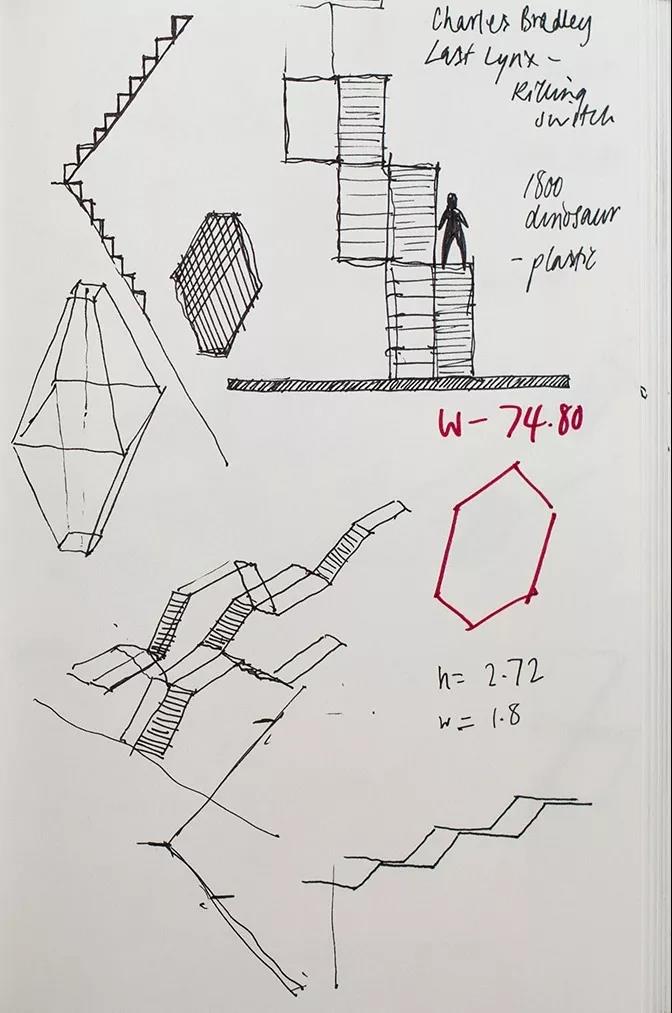 Charles Bradley
Last Lynx -
Killing
switch
1800
dinosaur
- plastic
W - 74.80
h = 2.72
w = 1.8